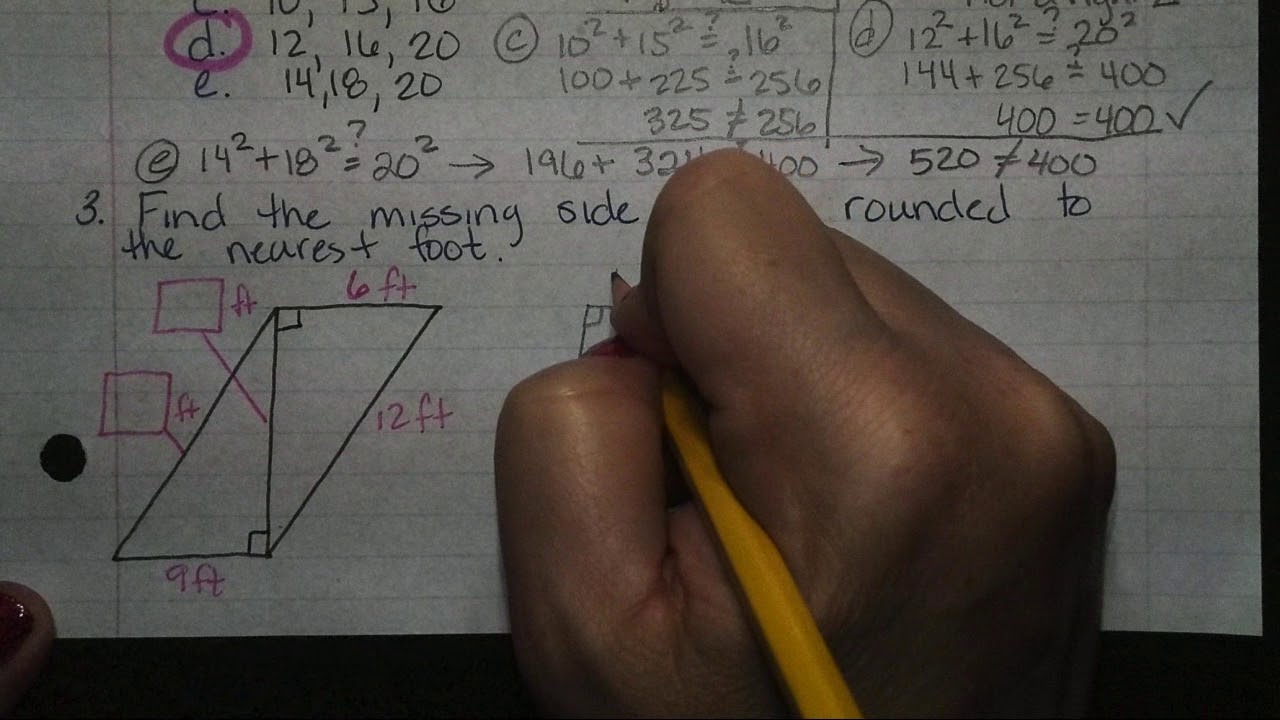 d. 12, 16, 20
e. 14, 18, 20
c 10² + 15² ≟ 16²
100 + 225 ≟ 256
325 ≠ 256
d 12² + 16² ≟ 20²
144 + 256 ≟ 400
400 = 400 ✓
e 14² + 18² ≟ 20² → 196 + 400 → 520 ≠ 400
3. Find the missing side rounded to
the nearest foot.
ft 6 ft
ft 12 ft
9 ft